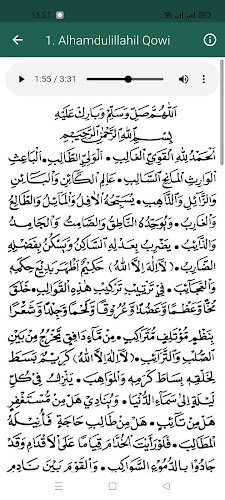 13.57
1. Alhamdulillahil Qowi
1:55 / 3:31
اَللّٰهُمَّ صَلِّ وَسَلِّمْ وَبَارِكْ عَلَيْهِ
بِسْمِ اللهِ الرَّحْمٰنِ الرَّحِيْمِ
اَلْحَمْدُ لِلّٰهِ الْقَوِيِّ الْغَالِبِ • اَلْوَلِيِّ الطَّالِبِ • اَلْبَاعِثِ
الْوَارِثِ الْمَانِحِ السَّالِبِ • عَالِمِ الْكَائِنِ وَالْبَائِنِ
وَالزَّائِلِ وَالذَّاهِبِ • يُسَبِّحُهُ الْاٰفِلُ وَالْمَائِلُ وَالطَّالِعُ
وَالْغَارِبُ • وَيُوَحِّدُهُ النَّاطِقُ وَالصَّامِتُ وَالْجَامِدُ
وَالذَّائِبُ • يَضْرِبُ بِعَدْلِهِ السَّاكِنُ وَيَسْكُنُ بِفَضْلِهِ
الضَّارِبُ • (لَاۤ اِلٰهَ اِلَّا اللهُ) حَكِيْمٌ اَظْهَرَ بَدِيْعَ حِكَمِهِ
وَالْعَجَائِبَ • فِيْ تَرْتِيْبِ تَرْكِيْبِ هٰذِهِ الْقَوَالِبِ • خَلَقَ
مُخًّا وَعَظْمًا وَعَضُدًا وَعُرُوْقًا وَلَحْمًا وَجِلْدًا وَشَعْرًا
بِنَظْمٍ مُؤْتَلِفٍ مُتَرَاكِبٍ • مِنْ مَاءٍ دَافِقٍ يَخْرُجُ مِنْ بَيْنِ
الصُّلْبِ وَالتَّرَائِبِ • (لَاۤ اِلٰهَ اِلَّا اللهُ) كَرِيْمٌ بَسَطَ
لِخَلْقِهِ بِسَاطَ كَرَمِهِ وَالْمَوَاهِبِ • يَنْزِلُ فِيْ كُلِّ
لَيْلَةٍ اِلٰى سَمَاءِ الدُّنْيَا • وَيُنَادِيْ هَلْ مِنْ مُسْتَغْفِرٍ
هَلْ مِنْ تَائِبٍ • هَلْ مِنْ طَالِبِ حَاجَةٍ فَاُنِيْلَهُ
الْمَطَالِبَ • فَلَوْ رَاَيْتَ الْخُدَّامَ قِيَامًا عَلَى الْاَقْدَامِ وَقَدْ
جَادُوْا بِالدُّمُوْعِ السَّوَاكِبِ • وَالْقَوْمُ بَيْنَ نَادِمٍ